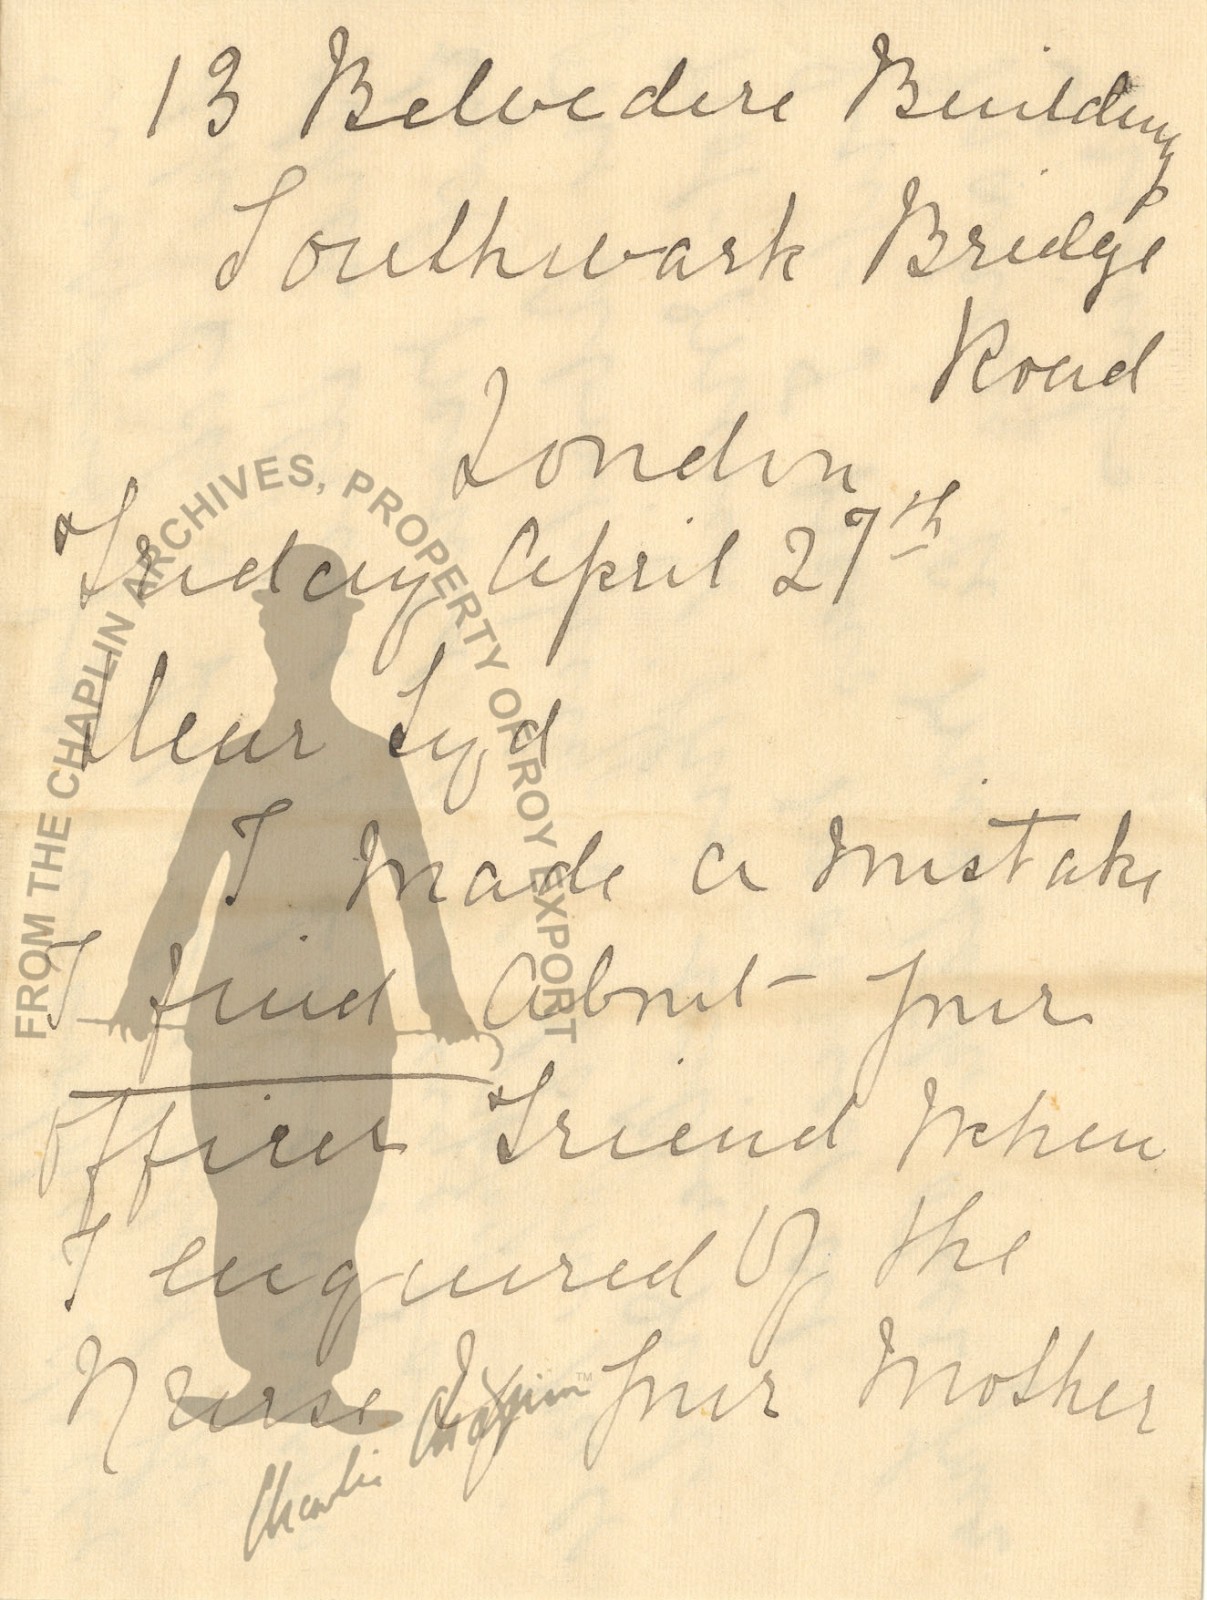 13 Belvedere Buildings
Southwark Bridge
Road
London
Friday April 27th
Dear Syd
I made a mistake
I find about your
officer Friend when
I enquired of the
Nurse & your Mother
FROM THE CHAPLIN ARCHIVES, PROPERTY OF ROY EXPORT
Charlie Chaplin™